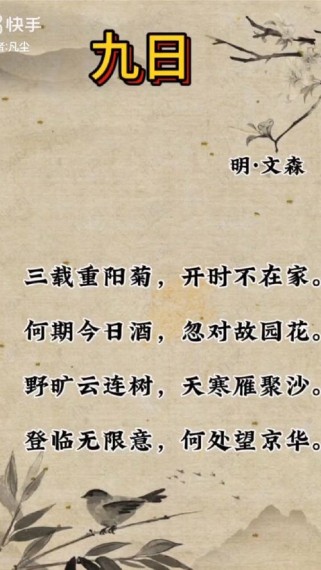 快手
凡尘
九日
明·文森
三载重阳菊，开时不在家。
何期今日酒，忽对故园花。
野旷云连树，天寒雁聚沙。
登临无限意，何处望京华。